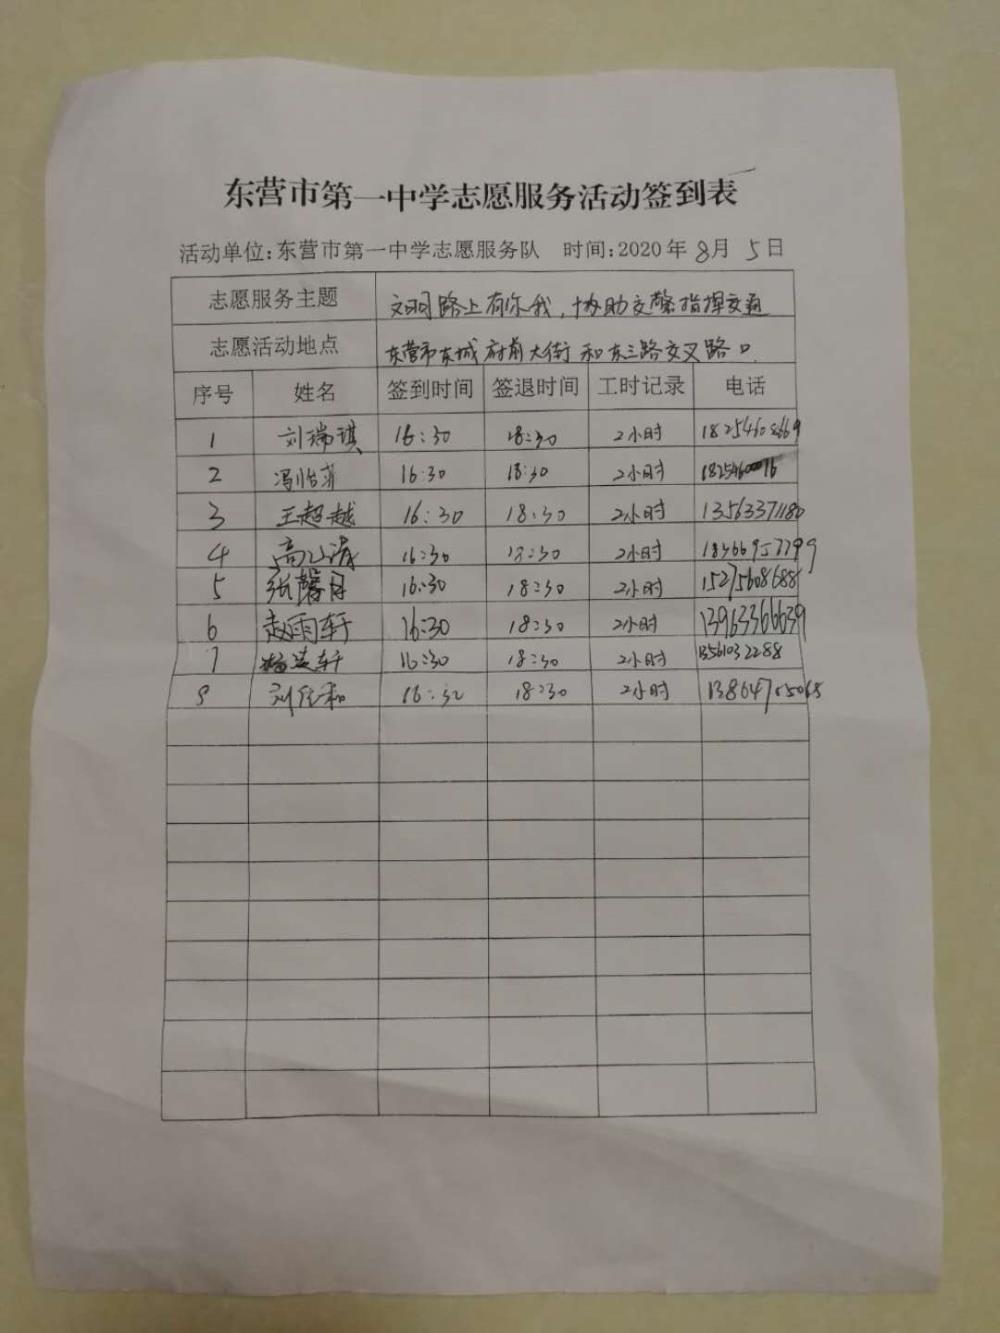 东营市第一中学志愿服务活动签到表
活动单位:东营市第一中学志愿服务队 时间:2020年8月5日
志愿服务主题 文明路上有你我,协助交警指挥交通
志愿活动地点 东营市东城府前大街和东三路交叉路口.
序号 姓名 签到时间 签退时间 工时记录 电话
1 刘瑞琪 16:30 18:30 2小时 18254608669
2 冯怡菲 16:30 18:30 2小时
3 王超越 16:30 18:30 2小时 13563371180
4 16:30 18:30 2小时
5 张馨月 16:30 18:30 2小时
6 赵雨轩 16:30 18:30 2小时 13963366639
7 16:30 18:30 2小时 13561032288
8 16:30 18:30 2小时